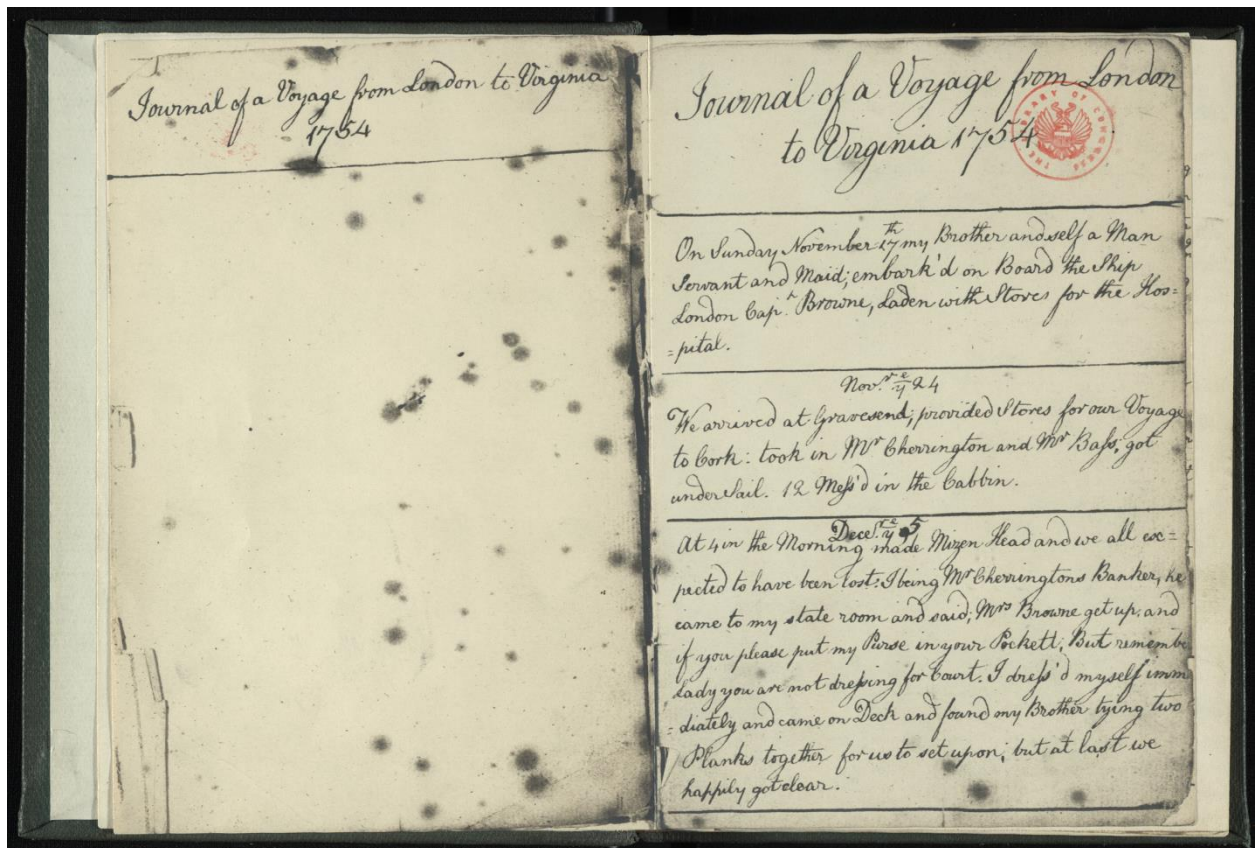 Journal of a Voyage from London to Virginia
1754
Journal of a Voyage from London
to Virginia 1754
THE LIBRARY OF CONGRESS
On Sunday November 17th my Brother and self a Man
Servant and Maid; embark'd on Board the Ship
London Capt. Browne, Laden with Stores for the Hos=
=pital.
Novr. ye 24
We arrived at Gravesend; provided Stores for our Voyage
to Cork: took in Mr Cherrington and Mr Bass, got
under Sail. 12 Mess'd in the Cabbin.
Decer. ye 5
At 4 in the Morning made Mizen Head and we all ex=
pected to have been lost: I being Mr Cherringtons Banker, he
came to my state room and said; Mrs Browne get up, and
if you please put my Purse in your Pockett; But remembe
Lady you are not dressing for Court. I dress'd myself imm
=diately and came on Deck and found my Brother tying two
Planks together for us to set upon; but at last we
happily got clear.